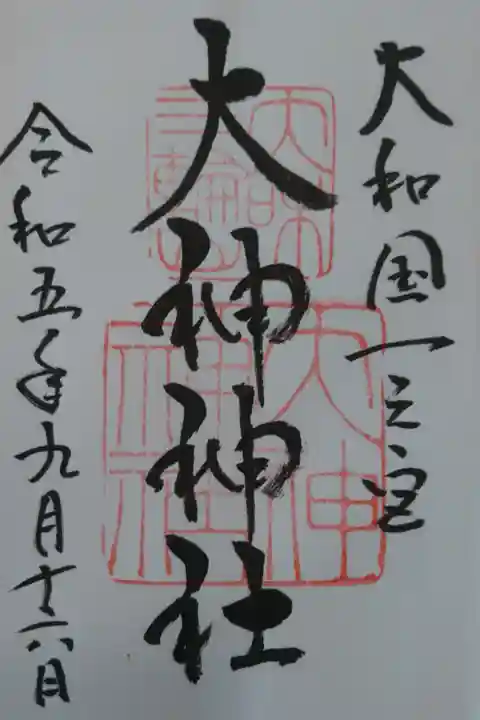 大和国一之宮
大神神社
令和五年九月十六日
大神
神社